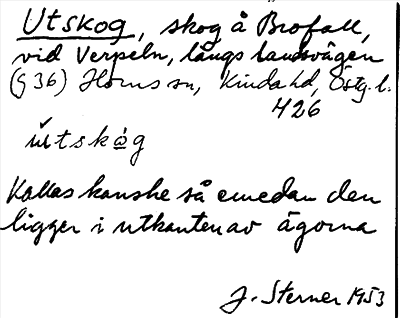 Utskog, skog å Brofall,
vid Verpeln, långs landsvägen
(§ 36) Horns sn, Kinda hd, Östg. l.
426
ŭtskåg
Kallas kanske så emedan den
ligger i utkanten av ägorna
J. Sterner 1953